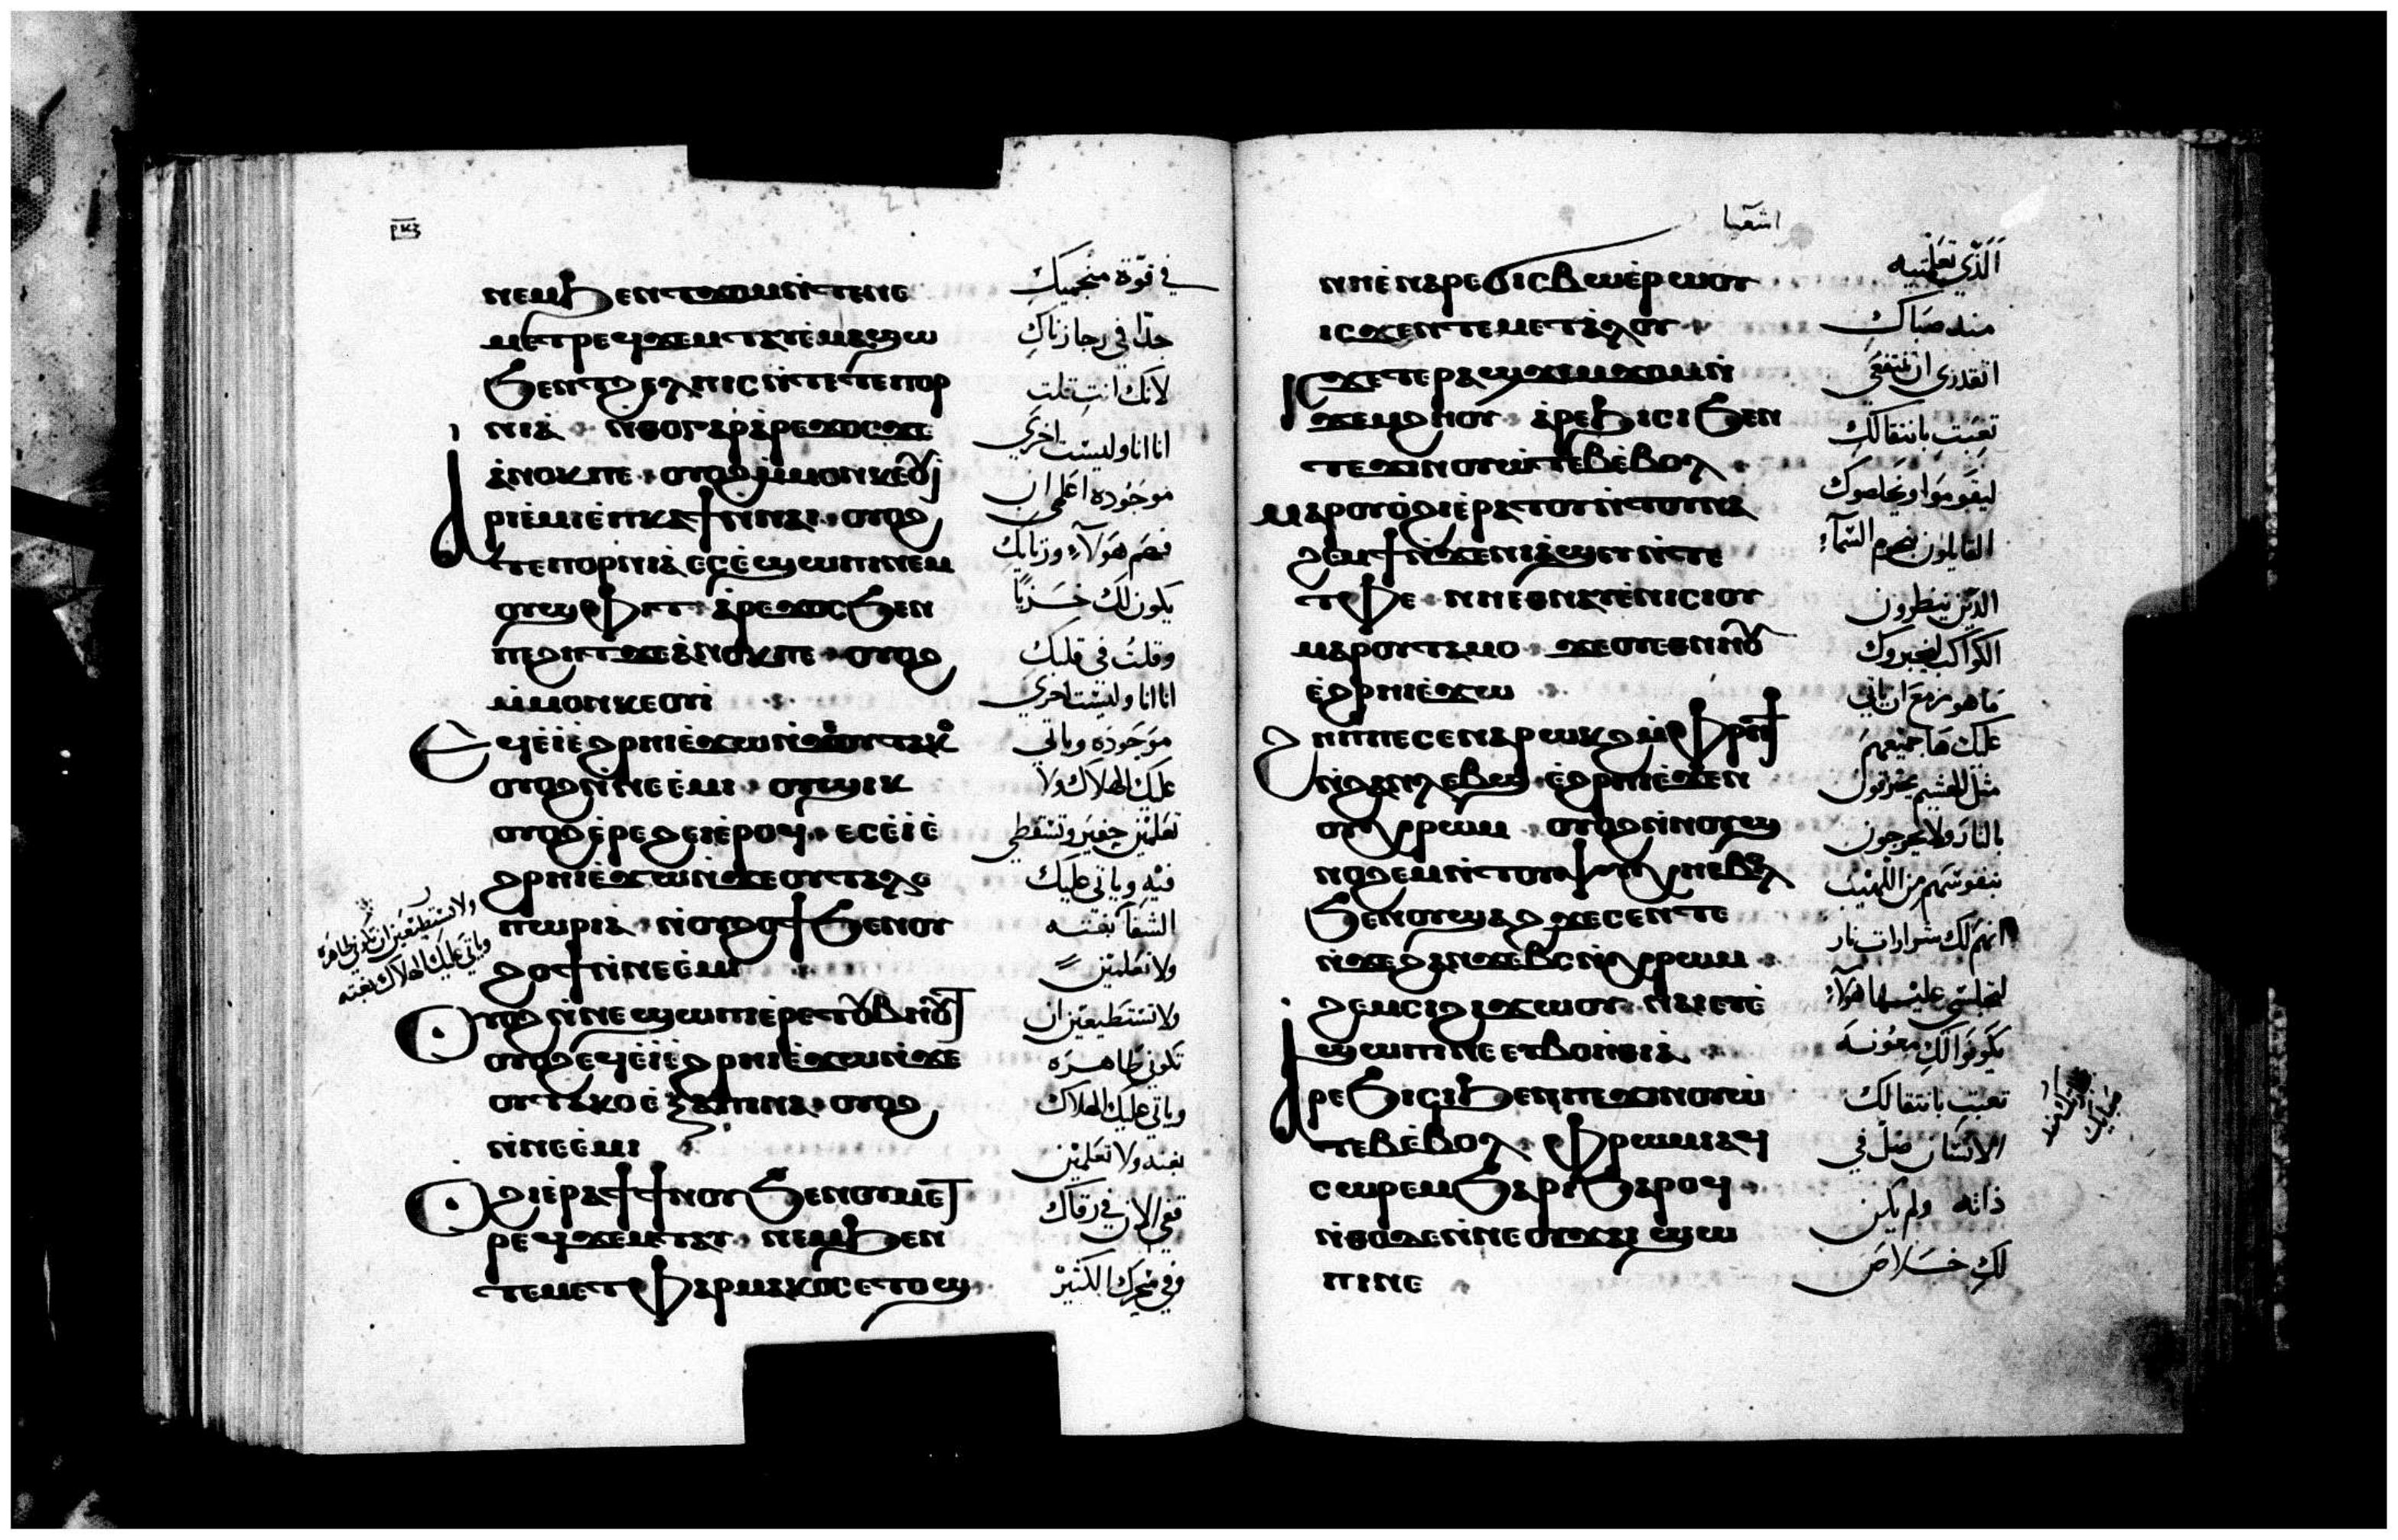 ⲣⲕⲍ
ⲛⲉⲙϧⲉⲛⲧϫⲟⲙⲛ̀ⲧⲉⲛⲉ
ⲙⲉⲧⲣⲉϥϫⲉⲙⲧⲁⲧⲉⲙⲁϣⲱ
ϧⲉⲛⲧϩⲉⲗⲡⲓⲥⲛ̀ⲧⲉⲧⲉⲡⲟⲣ
ⲛⲓⲁ · ⲛ̀ⲑⲟⲅⲁⲣⲁ̀ⲣⲉϫⲟⲥϫⲉ
ⲁ̀ⲛⲟⲕⲡⲉ · ⲟⲩⲟϩⲙ̀ⲙⲟⲛⲕⲉⲟⲩⲓ̀
ⲁ̀ⲣⲓⲉ̀ⲙⲓⲉ̀ⲡⲕⲁϯⲛ̀ⲛⲁⲓ · ⲟⲩⲟϩ
ⲧⲉⲡⲟⲣⲛⲓⲁ̀ⲉⲥⲉ̀ϣⲱⲡⲓⲛⲉⲙ
ⲟⲩϣⲫⲓⲧ · ⲁ̀ⲣⲉϫⲟⲥϧⲉⲛ
ⲡϩⲏⲧϫⲉⲁ̀ⲛⲟⲕⲡⲉ · ⲟⲩⲟϩ
ⲙ̀ⲙⲟⲛⲕⲉⲟⲩⲓ̀
ⲉϥⲉ̀ⲓ̀ⲉ̀ϩⲣⲏⲓⲉ̀ϫⲱⲛ̀ϫⲉⲟⲩⲧⲁⲕⲟ
ⲟⲩⲟϩⲛ̀ⲛⲉⲉ̀ⲙⲓ · ⲟⲩϣⲓⲕ
ⲟⲩⲟϩⲉ̀ⲣⲉϩⲉⲓⲉ̀ⲣⲟϥ · ⲉⲥⲉ̀ⲓ̀ⲉ̀
ϩⲣⲏⲓⲉ̀ϫⲱⲛ̀ϫⲉⲟⲩⲧⲁⲗⲉ
ⲡⲱⲣⲓⲁ · ⲛ̀ⲟⲩϩⲟϯϧⲉⲛⲟⲩ
ϩⲟϯⲛ̀ⲛⲉⲉ̀ⲙⲓ
ⲟⲩⲟϩⲛ̀ⲛⲉϣⲱⲡⲓⲉ̀ⲣⲉⲧⲟⲩⲃⲏⲟⲩⲧ
ⲟⲩⲟϩⲉϥⲉ̀ⲓ̀ⲉ̀ϩⲣⲏⲓⲉ̀ϫⲱⲛ̀ϫⲉ
ⲟⲩⲧⲁⲕⲟⲉ̀ⲝⲁⲡⲓⲛⲁ · ⲟⲩⲟϩ
ⲛ̀ⲛⲉⲉ̀ⲙⲓ
ⲟϩⲓⲉ̀ⲣⲁϯϯⲛⲟⲩϧⲉⲛⲟⲩⲙⲉⲧ
ⲣⲉϥϫⲉⲙⲧⲁⲩ · ⲛⲉⲙϧⲉⲛ
ⲧⲉⲙⲉⲧⲫⲁⲣⲙⲁⲕⲟⲥⲉⲧⲟϣ
في قوة منجميك
جدا في رجا زناك
لانك انت قلت
انا انا وليست اخرى
موجوده اعلمي ان
فهم هولاء وزناك
يكون لك خزيا
وقلت في قلبك
انا انا وليست اخرى
موجوده وياتي
عليك الهلاك ولا
تعلمين حفير وتسقطي
فيه وياتي عليك
الشقا بغته
ولا تعلمين
ولا تستطيعين ان
تكوني طاهره
وياتي عليك الهلاك
بغته ولا تعلمين
قفي الان في رقاك
وفي سحرك الكثير
ولا تستطيعين ان تكوني طاهره
وياتي عليك الهلاك بغته
اشعيا
ⲛⲏⲉ̀ⲛⲁⲣⲉϭⲓⲥⲃⲱⲉ̀ⲣⲱⲟⲩ
ⲓⲥϫⲉⲛⲧⲉⲙⲉⲧⲁ̀ⲗⲟⲩ ·
ϫⲉⲧⲉⲣⲁϣϫⲉⲙϫⲟⲙⲛ̀
ϫⲉⲙϩⲏⲟⲩ · ⲁ̀ⲣⲉϧⲓⲥⲓϧⲉⲛ
ⲧⲉϫⲓⲛⲟⲩⲱⲧⲉⲃⲉ̀ⲃⲟⲗ ·
ⲙⲁⲣⲟⲩⲟ̀ϩⲓⲉ̀ⲣⲁⲧⲟⲩⲛ̀ⲧⲟⲩⲛⲁ
ϩⲙⲉϯⲛ̀ϫⲉⲛⲓⲁ̀ϣⲏⲛ̀ⲧⲉ
ⲧⲫⲉ · ⲛⲏⲉⲑⲛⲁⲩⲉ̀ⲛⲓⲥⲓⲟⲩ
ⲙⲁⲣⲟⲩⲧⲁⲙⲟ · ϫⲉⲟⲩⲉⲑⲛⲏⲟⲩ
ⲉ̀ϩⲣⲏⲓⲉ̀ϫⲱ
ϩⲏⲡⲡⲉⲥⲉⲛⲁⲣⲱⲕϩⲙ̀ⲫⲣⲏϯ
ⲛ̀ϩⲁⲛⲗⲉⲃϣ · ⲉ̀ϩⲣⲏⲓⲉ̀ϫⲉⲛ
ⲟⲩⲭⲣⲱⲙ · ⲟⲩⲟϩⲛ̀ⲛⲟⲩϣ
ⲛⲟϩⲉⲙⲛ̀ⲧⲟⲩⲯⲩⲭⲏⲉ̀ⲃⲟⲗ
ϧⲉⲛⲟⲩϣⲁϩ ϫⲉⲥⲉⲛⲧⲉ
ⲛ̀ϫⲉϩⲁⲛϫⲉⲃⲥⲛ̀ⲭⲣⲱⲙ ·
ϩⲉⲙⲥⲓϩⲓϫⲱⲟⲩ · ⲛⲁⲓⲉⲩⲉ̀
ϣⲱⲡⲓⲛⲉⲉⲩⲃⲟⲏ̀ⲑⲓⲁ ·
ⲁⲣⲉϧⲓⲥⲓϧⲉⲛⲡⲉϫⲓⲛⲟⲩⲱ̀
ⲧⲉⲃⲉ̀ⲃⲟⲗ · ⲫⲣⲱⲙⲓⲁϥ
ⲥⲱⲣⲉⲙϧⲁⲣⲓϧⲁⲣⲟϥ ·
ⲛ̀ⲑⲟϫⲉⲛ̀ⲛⲉⲟⲩϫⲁⲓ ϣⲱ
ⲡⲓⲛⲉ
الذي تعلمتيه
منذ صباك
اتقدري ان تنتفعي
تعبت بانتقالك
ليقوموا ويخلصوك
القايلون نجوم السماء
الذين ينظرون
الكواكب ليخبروك
ما هو مزمع ان ياتي
عليك ها جميعهم
مثل الهشيم يحترقون
بالنار ولا يخرجون
نفوسهم من اللهيب
انهم لك شرارات نار
لتجلسي عليها هولاء
يكونوا لك معونه
تعبت بانتقالك
الانسان ضل في
ذاته ولم يكن
لك خلاص